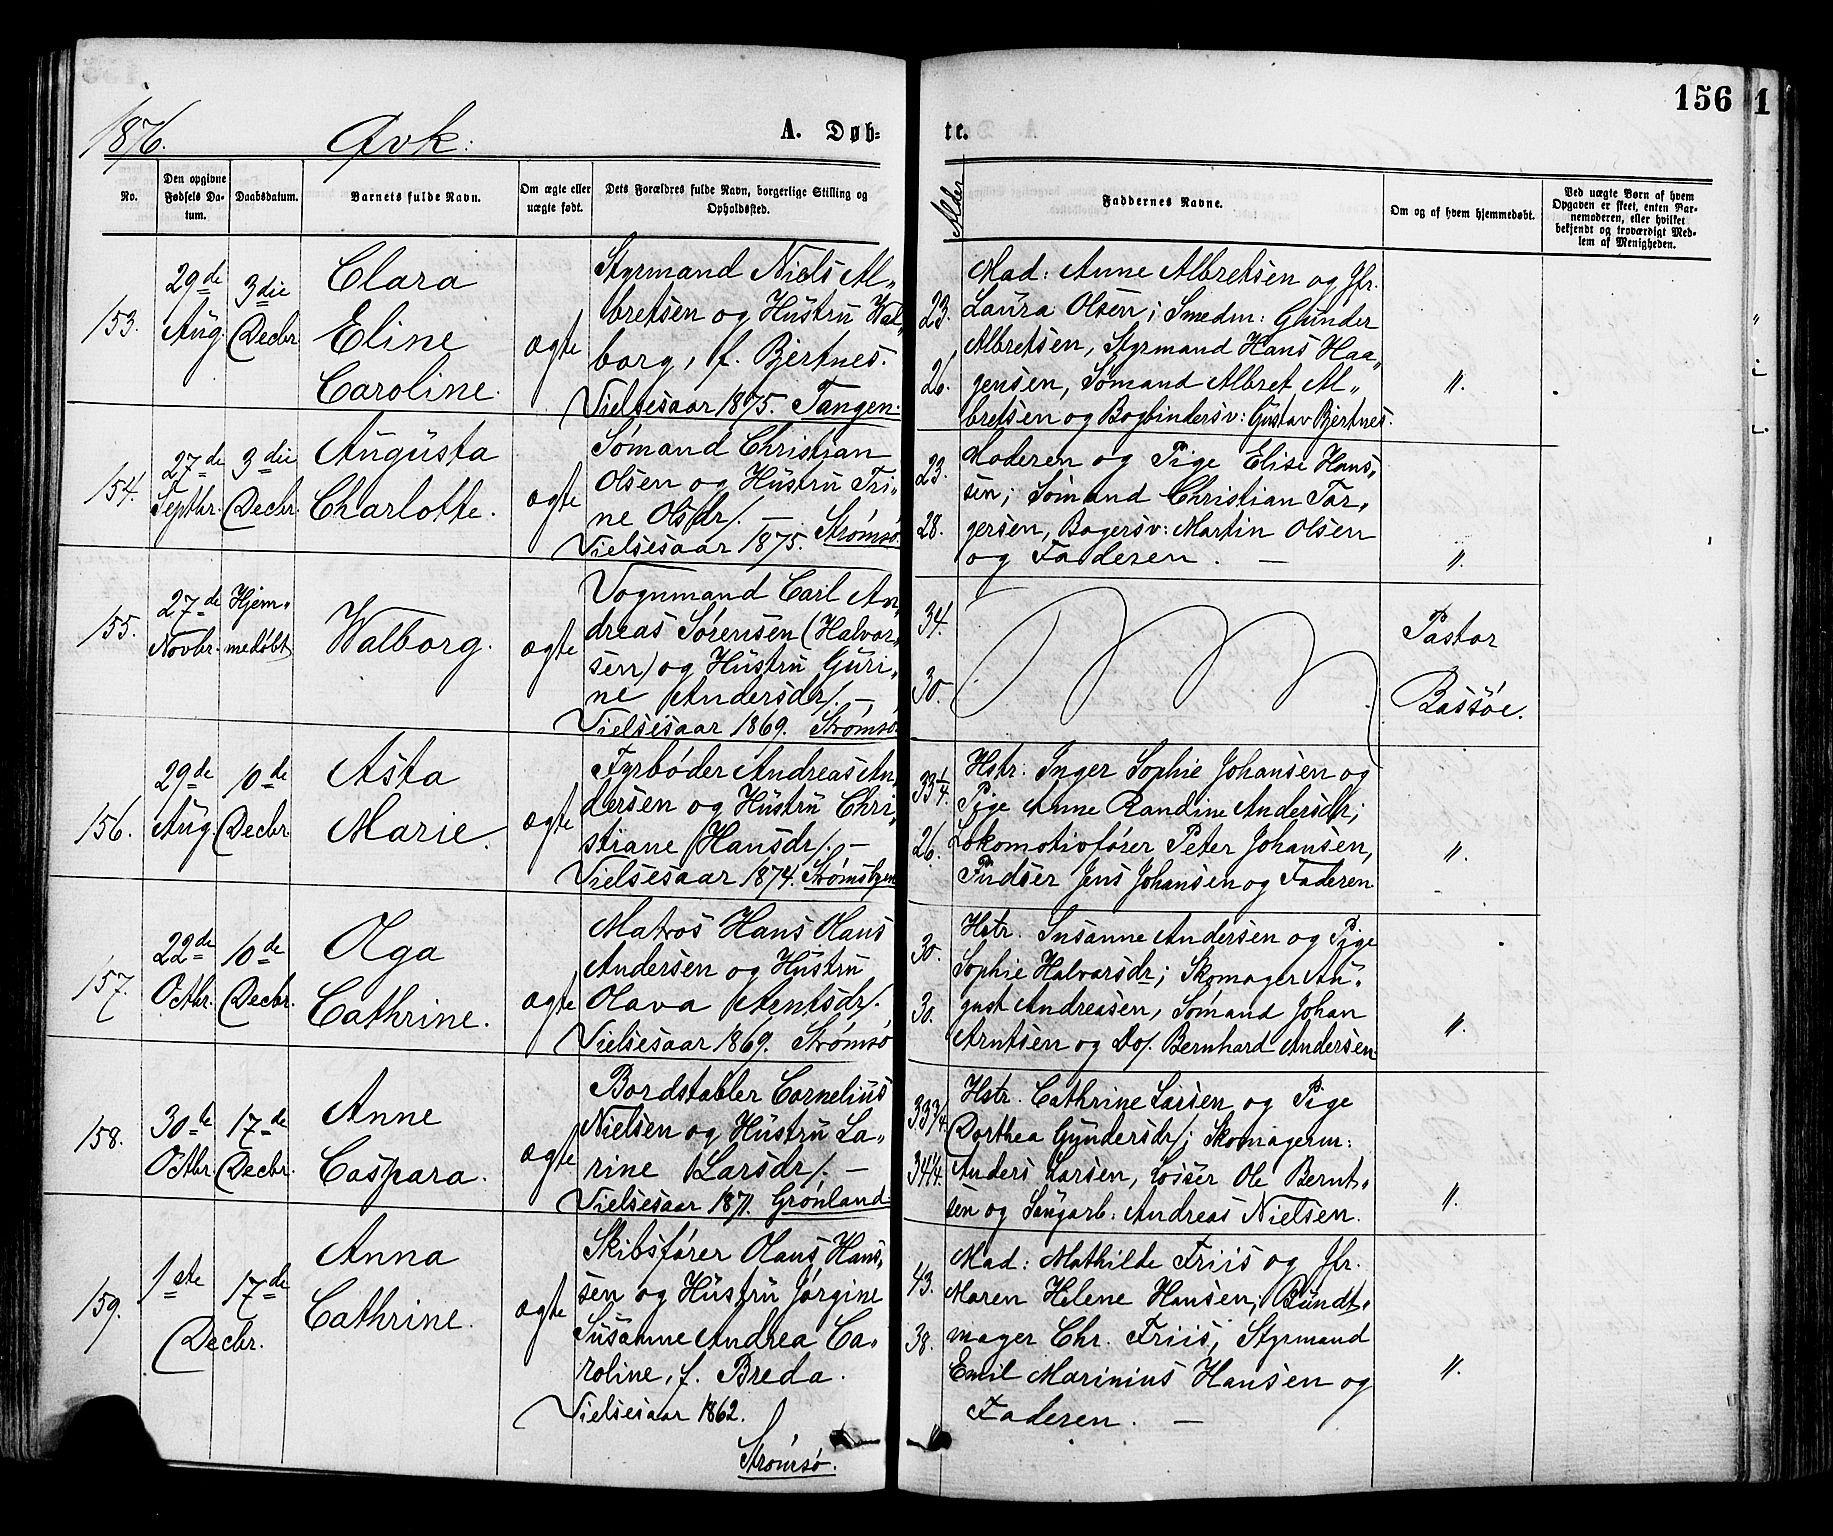 156
1
1876.
Qvk:
A. Døb-
te.
No.
Den opgivne Fødsels Da-
tum.
Daabsdatum.
Barnets fulde Navn.
Om ægte eller
uægte født.
Dets Forældres fulde Navn, borgerlige Stilling og
Opholdssted.
Alder
Faddernes Navne.
Om og af hvem hjemmedøbt.
Ved uægte Børn af hvem
Opgaven er skeet, enten Bar-
nemoderen, eller hvilket
bekjendt og troværdigt Med-
lem af Menigheden.
153.
29de
Aug.
3die
Decbr.
Clara
Eline
Caroline.
ægte
Styrmand Niels Al-
bretsen og Hustru Wal-
borg, f. Bjertnes.
Vielsesaar 1875. Tangen.
23.
26.
Mad: Anne Albretsen og Jfr.
Laura Olsen; Smedm: Gunder
Albretsen, Styrmand Hans Haa-
gensen, Sømand Albret Al-
bretsen og Bogbindersv: Gustav Bjertnes.
"
154.
27de
Septbr.
3die
Decbr.
Augusta
Charlotte.
ægte
Sømand Christian
Olsen og Hustru Tri-
ne Olsdr/. —
Vielsesaar 1875. Strømsø.
23.
28.
Moderen og Pige Elise Hans-
sen; Sømand Christian Tor-
gersen, Bagersv: Martin Olsen
og Faderen. —
"
155.
27de
Novbr.
Hjem-
medøbt
Walborg.
ægte
Vognmand Carl An-
dreas Sørensen (Halvor-
sen) og Hustru Guri-
ne Andersdr/. —
Vielsesaar 1869. Strømsø.
34.
30.
Pastor
Bassøe.
156.
29de
Aug.
10de
Decbr.
Asta
Marie.
ægte
Fyrbøder Andreas An-
dersen og Hustru Chri-
stiane Hansdr/. —
Vielsesaar 1874. Strømsbyen
33 1/4.
26.
Hstr. Inger Sophie Johansen og
Pige Anne Randine Andersdr;
Lokomotivfører Peter Johansen,
Pudser Jens Johansen og Faderen
"
157.
22de
Octbr.
10de
Decbr.
Olga
Cathrine.
ægte
Matros Hans Olaus
Andersen og Hustru
Olava Arntsdr/.
Vielsesaar 1869. Strømsø
30.
30.
Hstr. Susanne Andersen og Pige
Sophie Halvorsdr; Skomager Au-
gust Andreasen, Sømand Johan
Arntsen og Do/. Bernhard Andersen
"
158.
30te
Octbr.
17de
Decbr.
Anne
Caspara.
ægte
Bordstabler Cornelius
Nielsen og Hustru La-
rine Larsdr/. —
Vielsesaar 1871. Grønland.
33 3/4.
34 1/4.
Hstr. Cathrine Larsen og Pige
Dorthea Gundersdr/; Skomagerm:
Anders Larsen, Losser Ole Bernt-
sen og Saugarb: Andreas Nielsen.
"
159.
1ste
17de
Decbr.
Anna
Cathrine.
ægte
Skibsfører Olaus Hans-
sen og Hustru Jørgine
Susanne Andrea Ca-
roline, f. Breda.
Vielsesaar 1862.
Strømsø.
43.
38.
Mad: Mathilde Friis og Jfr.
Maren Helene Hansen; Bundt-
mager Chr. Friis, Styrmand
Emil Marinius Hansen og
Faderen. —
"